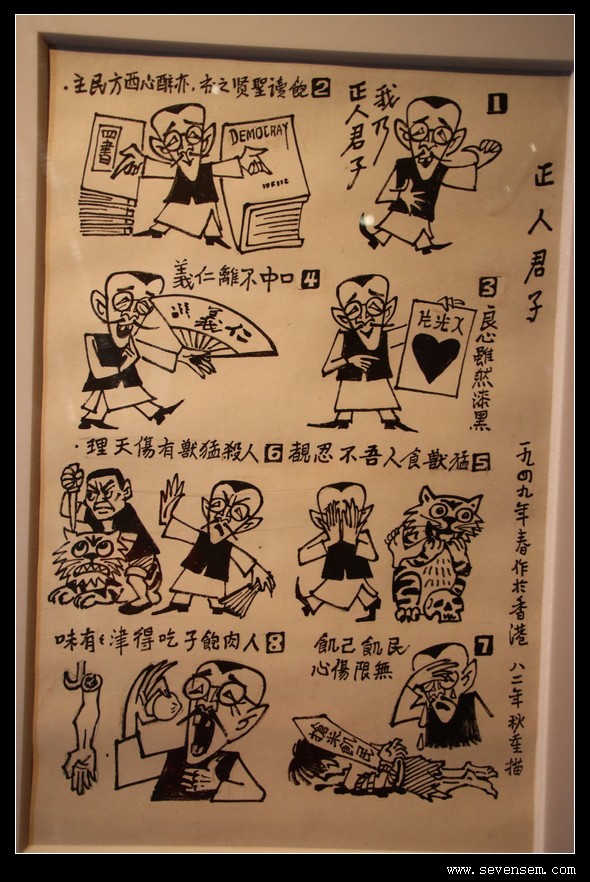 正人君子
1
我乃
正人君子
2 飽讀聖贤之书.亦醉心西方民主.
四書
DEMOCRAY
3
良心雖然漆黑
X光片
4 口中不離仁義
仁義
5 猛獸食人吾不忍覩
6 人殺猛獸有傷天理.
7
民飢己飢
無限傷心
搶米飢民
8 人肉飽子吃得津々有味
一九四九年春作於香港 八二年秋重描
www.sevensem.com